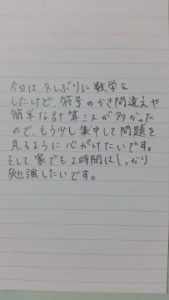 今日は、久しぶりに数学を
したけど、符号のかき間違えや
簡単な計算ミスが多かった
ので、もう少し集中して問題を
見るように心がけたいです。
そして家でも2時間はしっかり
勉強したいです。